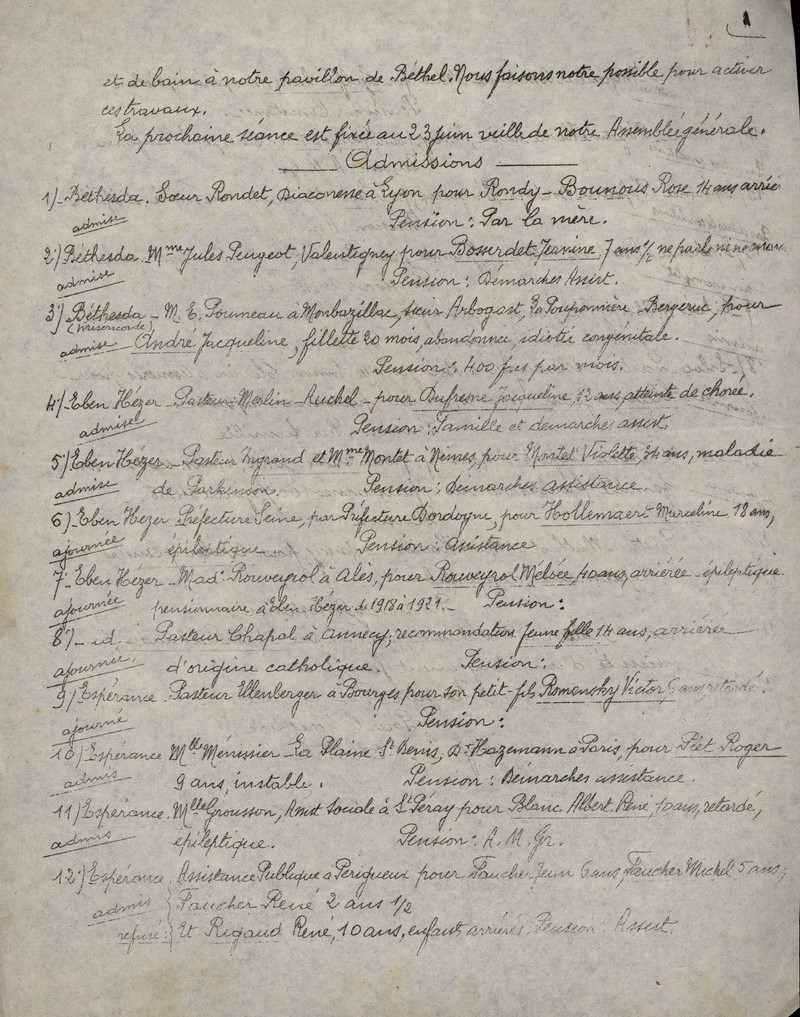 1
et de bain à notre pavillon de Béthel. Nous faisons notre possible pour activer
ces travaux.
La prochaine séance est fixée au 23 juin veille de notre Assemblée générale.
Admissions
1)- Béthesda. Sœur Rondet, Diaconesse à Lyon pour Rondy-Bounous Rose 14 ans arrié
admise Pension: Par la mère.
2) Béthesda. Mme Jules Peugeot, Valentigney pour Bosserdet Jeanine, 7 ans 1/2 ne parle ni ne
admise Pension: Démarches Assist.
3) Béthesda - M. E. Poumeau à Monbazillac, sœur Arbogast, La Pouponnière - Bergerac, pour
(Miséricorde)
admise - André Jacqueline, fillette 20 mois, abandonnée, idiotie congénitale.
Pension: 400 frcs par mois.
4)- Eben Hézer - Pasteur Merlin - Auchel - pour Dufresne Jacqueline, 12 ans, atteinte de chorée.
admise Pension: Famille et démarches assist.
5) Eben Hézer - Pasteur et Mme Montet à Nîmes, pour Montet Violette, 34 ans, maladie
admise de Parkinson. Pension: démarches assistance.
6) Eben Hézer Préfecture Seine, par Préfecture Dordogne, pour Hollemaert Marceline 18 ans,
ajournée épileptique Pension: Assistance
7- Eben Hézer - Made Rouveyrol à Alès, pour Rouveyrol Méloée, 40 ans, arriérée - épileptique.
ajournée pensionnaire à Eben-Hézer de 1918 à 1921. - Pension:
8)- id. Pasteur Chapal à Annecy, recommandation jeune fille 14 ans, arriérée
ajournée. d'origine catholique. Pension:
9) Espérance. Pasteur Ellenberger à Bourges pour son petit-fils Romensky Victor, 6 ans retardé.
ajourné Pension:
10) Espérance Mlle Ménissier - La Plaine St Denis, Dr Hazemann à Paris, pour Piet Roger
admis 9 ans, instable. Pension: Démarches assistance.
11) Espérance. Mlle Grousson, Assist Sociale à St Péray pour Blanc Albert-René, 10 ans, retardé,
admis épileptique. Pension: A. M. Gr.
12) Espérance. Assistance Publique à Périgueux pour Faucher Jean 6 ans, Faucher Michel 5 ans,
admis Faucher René 2 ans 1/2
refusé: Et Rigaud René, 10 ans, enfants arriérés. Pension: Assist.